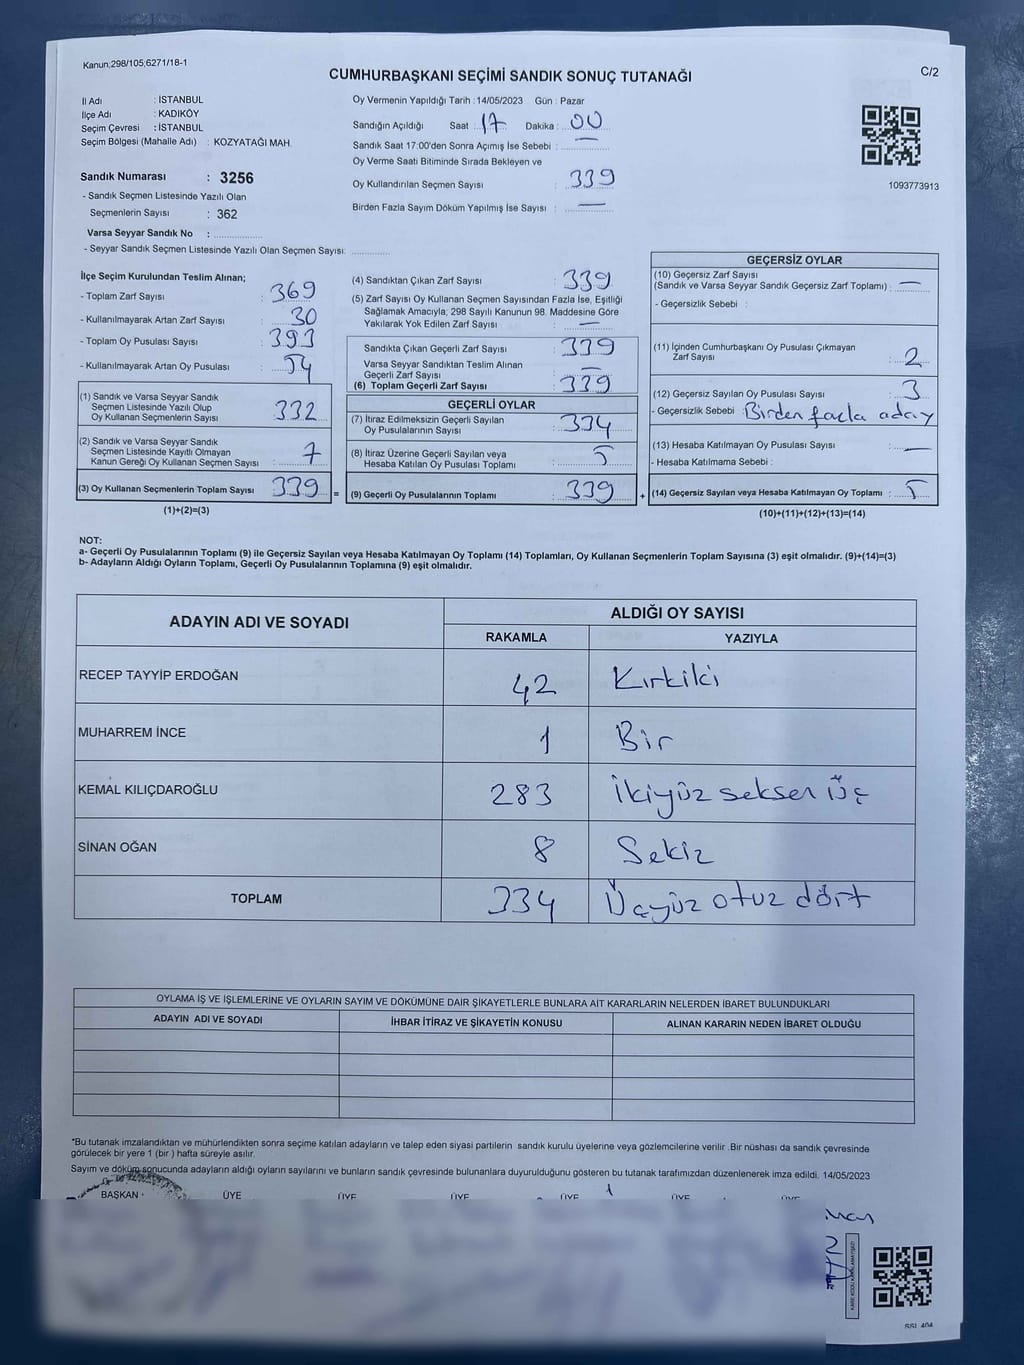 Kanun;298/105;6271/18-1
CUMHURBAŞKANI SEÇİMİ SANDIK SONUÇ TUTANAĞI
C/2
İl Adı : İSTANBUL
İlçe Adı : KADIKÖY
Seçim Çevresi : İSTANBUL
Seçim Bölgesi (Mahalle Adı) : KOZYATAĞI MAH.
Sandık Numarası : 3256
- Sandık Seçmen Listesinde Yazılı Olan
Seçmenlerin Sayısı : 362
Varsa Seyyar Sandık No :
- Seyyar Sandık Seçmen Listesinde Yazılı Olan Seçmen Sayısı:
Oy Vermenin Yapıldığı Tarih : 14/05/2023 Gün : Pazar
Sandığın Açıldığı Saat : 17 Dakika : 00
Sandık Saat 17:00'den Sonra Açımış İse Sebebi : —
Oy Verme Saati Bitiminde Sırada Bekleyen ve
Oy Kullandırılan Seçmen Sayısı : 339
Birden Fazla Sayım Döküm Yapılmış İse Sayısı : —
1093773913
İlçe Seçim Kurulundan Teslim Alınan;
- Toplam Zarf Sayısı : 369
- Kullanılmayarak Artan Zarf Sayısı : 30
- Toplam Oy Pusulası Sayısı : 393
- Kullanılmayarak Artan Oy Pusulası : 54
(1) Sandık ve Varsa Seyyar Sandık
Seçmen Listesinde Yazılı Olup
Oy Kullanan Seçmenlerin Sayısı : 332
(2) Sandık ve Varsa Seyyar Sandık
Seçmen Listesinde Kayıtlı Olmayan
Kanun Gereği Oy Kullanan Seçmen Sayısı : 7
(3) Oy Kullanan Seçmenlerin Toplam Sayısı : 339 =
(1)+(2)=(3)
(4) Sandıktan Çıkan Zarf Sayısı : 339
(5) Zarf Sayısı Oy Kullanan Seçmen Sayısından Fazla İse, Eşitliği
Sağlamak Amacıyla; 298 Sayılı Kanunun 98. Maddesine Göre
Yakılarak Yok Edilen Zarf Sayısı : —
Sandıkta Çıkan Geçerli Zarf Sayısı : 339
Varsa Seyyar Sandıktan Teslim Alınan
Geçerli Zarf Sayısı : —
(6) Toplam Geçerli Zarf Sayısı : 339
GEÇERLİ OYLAR
(7) İtiraz Edilmeksizin Geçerli Sayılan
Oy Pusulalarının Sayısı : 334
(8) İtiraz Üzerine Geçerli Sayılan veya
Hesaba Katılan Oy Pusulası Toplamı : 5
(9) Geçerli Oy Pusulalarının Toplamı : 339 +
GEÇERSİZ OYLAR
(10) Geçersiz Zarf Sayısı
(Sandık ve Varsa Seyyar Sandık Geçersiz Zarf Toplamı) : —
- Geçersizlik Sebebi :
(11) İçinden Cumhurbaşkanı Oy Pusulası Çıkmayan
Zarf Sayısı : 2
(12) Geçersiz Sayılan Oy Pusulası Sayısı : 3
- Geçersizlik Sebebi : Birden fazla aday
(13) Hesaba Katılmayan Oy Pusulası Sayısı : —
- Hesaba Katılmama Sebebi :
(14) Geçersiz Sayılan veya Hesaba Katılmayan Oy Toplamı : 5
(10)+(11)+(12)+(13)=(14)
NOT:
a- Geçerli Oy Pusulalarının Toplamı (9) ile Geçersiz Sayılan veya Hesaba Katılmayan Oy Toplamı (14) Toplamları, Oy Kullanan Seçmenlerin Toplam Sayısına (3) eşit olmalıdır. (9)+(14)=(3)
b- Adayların Aldığı Oyların Toplamı, Geçerli Oy Pusulalarının Toplamına (9) eşit olmalıdır.
ADAYIN ADI VE SOYADI ALDIĞI OY SAYISI
RAKAMLA YAZIYLA
RECEP TAYYİP ERDOĞAN 42 Kırkiki
MUHARREM İNCE 1 Bir
KEMAL KILIÇDAROĞLU 283 İkiyüz seksen üç
SİNAN OĞAN 8 Sekiz
TOPLAM 334 Üçyüz otuz dört
OYLAMA İŞ VE İŞLEMLERİNE VE OYLARIN SAYIM VE DÖKÜMÜNE DAİR ŞİKAYETLERLE BUNLARA AİT KARARLARIN NELERDEN İBARET BULUNDUKLARI
ADAYIN ADI VE SOYADI İHBAR İTİRAZ VE ŞİKAYETİN KONUSU ALINAN KARARIN NEDEN İBARET OLDUĞU
*Bu tutanak imzalandıktan ve mühürlendikten sonra seçime katılan adayların ve talep eden siyasi partilerin sandık kurulu üyelerine veya gözlemcilerine verilir. Bir nüshası da sandık çevresinde
görülecek bir yere 1 (bir ) hafta süreyle asılır.
Sayım ve döküm sonucunda adayların aldığı oyların sayılarını ve bunların sandık çevresinde bulunanlara duyurulduğunu gösteren bu tutanak tarafımızdan düzenlenerek imza edildi. 14/05/2023
BAŞKAN ÜYE ÜYE ÜYE ÜYE ÜYE ÜYE